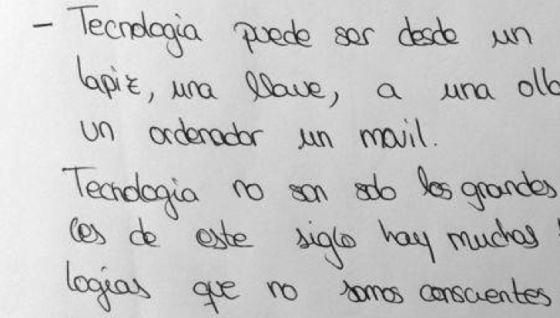 - Tecnologia puede ser desde un
lapiz, una llave, a una olla
un ordenador un movil.
Tecnologia no son solo los grandes
ces de este siglo hay muchas
logias que no somos conscientes